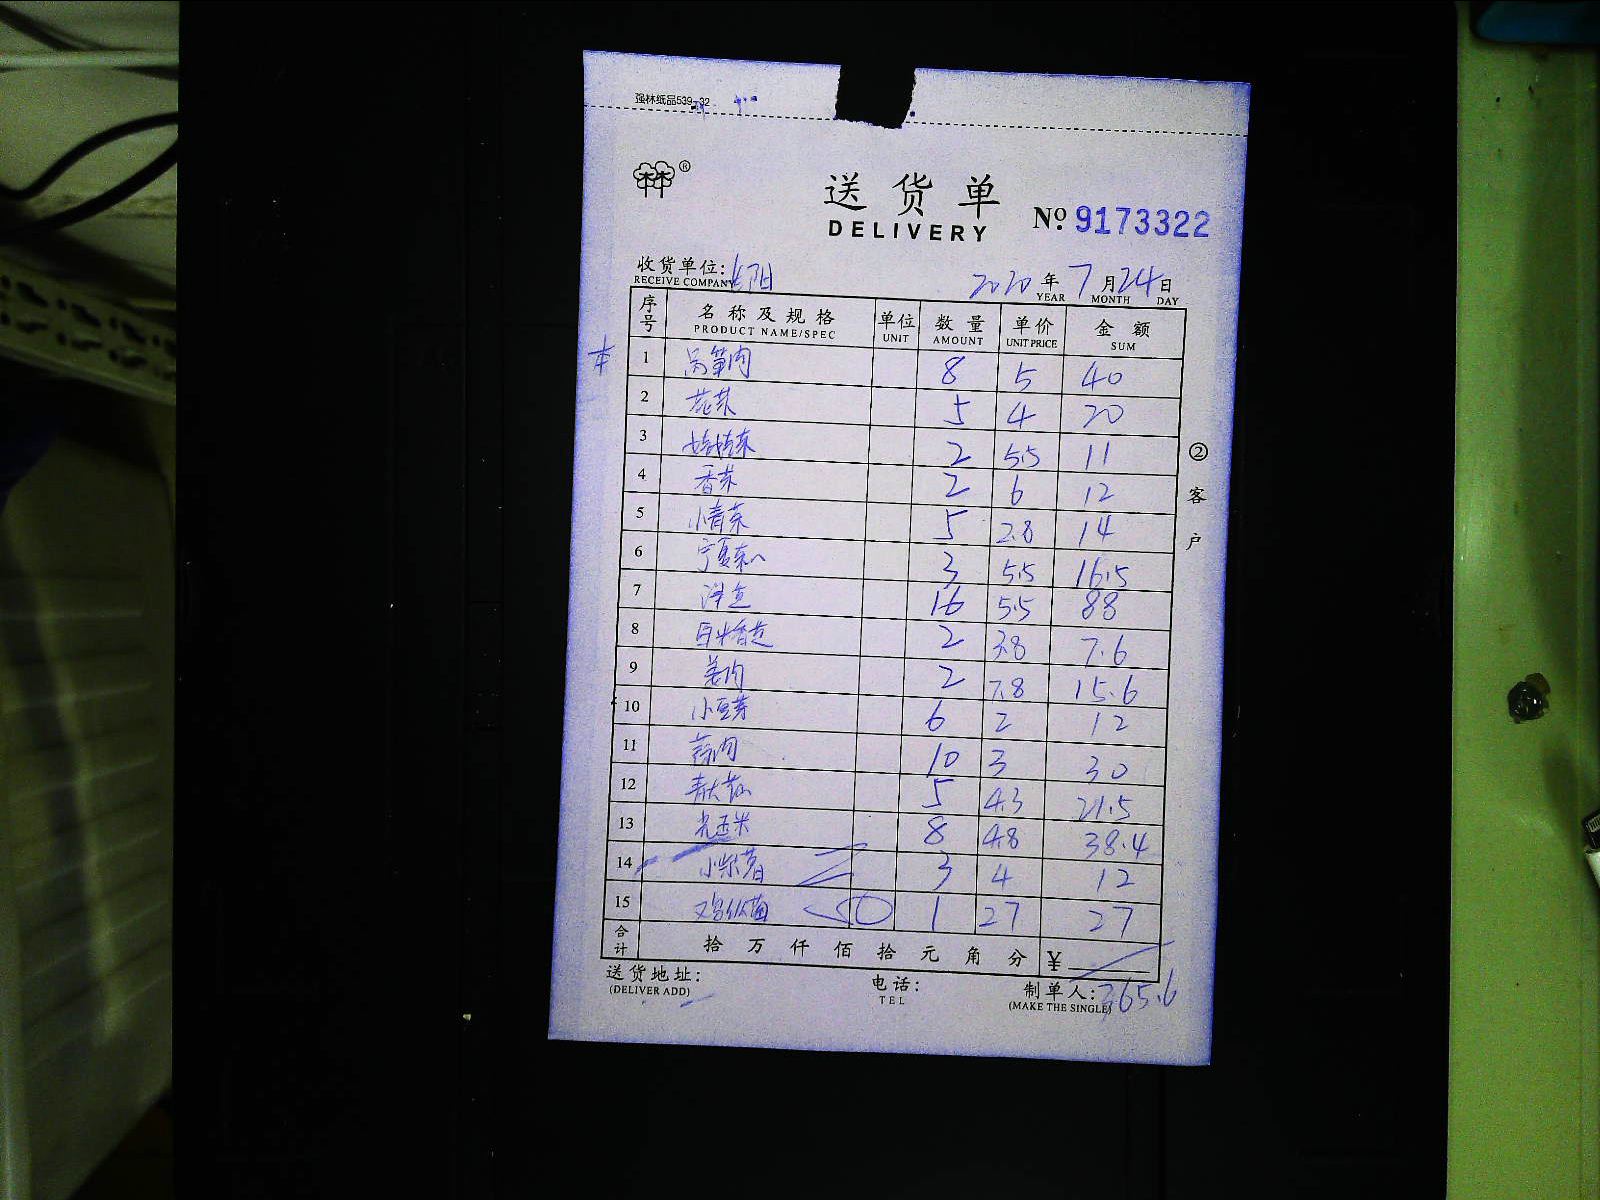 强林纸品539-32
®
送货单
DELIVERY
No: 9173322
收货单位: 长阳 2020年7月24日
RECEIVE COMPANY YEAR MONTH DAY
序号 名称及规格 单位 数量 单价 金额
PRODUCT NAME/SPEC UNIT AMOUNT UNIT PRICE SUM
1 莴笋肉 8 5 40
2 花菜 5 4 20
3 娃娃菜 2 5.5 11
4 香菜 2 6 12
5 小青菜 5 2.8 14
6 宁夏菜心 3 5.5 16.5
7 洋芋 16 5.5 88
8 2 3.8 7.6
9 姜肉 2 7.8 15.6
10 小豆芽 6 2 12
11 蒜肉 10 3 30
12 5 4.3 21.5
13 光玉米 8 4.8 38.4
14 小紫薯 3 4 12
15 鸡纵菌 50 1 27 27
合计 拾万仟佰拾元角分 ¥
送货地址: 电话: 制单人: 365.6
(DELIVER ADD) TEL (MAKE THE SINGLE)
②客户